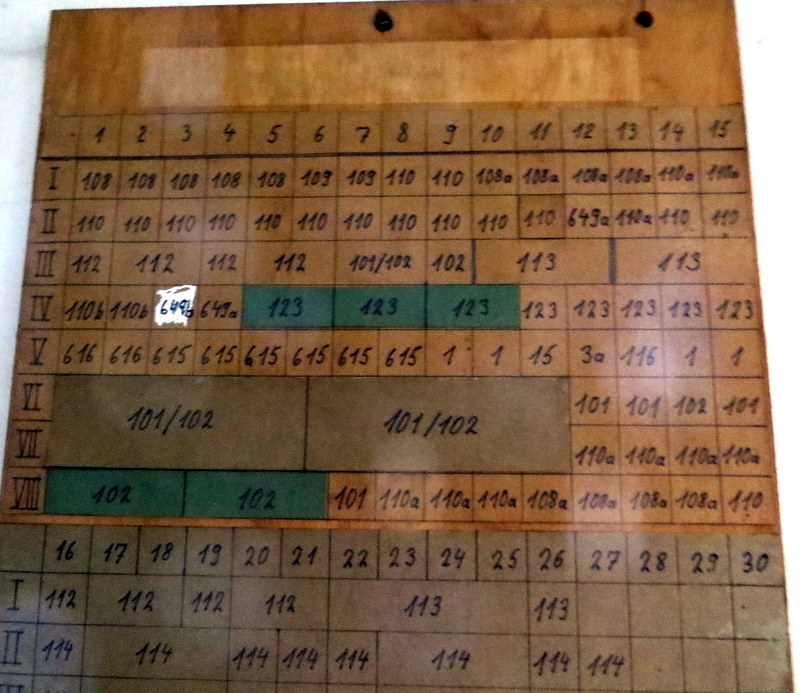 1 2 3 4 5 6 7 8 9 10 11 12 13 14 15
I 108 108 108 108 108 109 109 110 110 108a 108a 108a 108a 110a 110a
II 110 110 110 110 110 110 110 110 110 110 110 649a 110a 110 110
III 112 112 112 112 101/102 102 113 113
IV 110b 110b 649b 649a 123 123 123 123 123 123 123 123
V 616 616 615 615 615 615 615 615 1 1 15 3a 116 1 1
VI 101/102 101/102 101 101 102 101
VII 110a 110a 110a 110a
VIII 102 102 101 110a 110a 110a 108a 108a 108a 108a 110
16 17 18 19 20 21 22 23 24 25 26 27 28 29 30
I 112 112 112 112 113 113
II 114 114 114 114 114 114 114 114